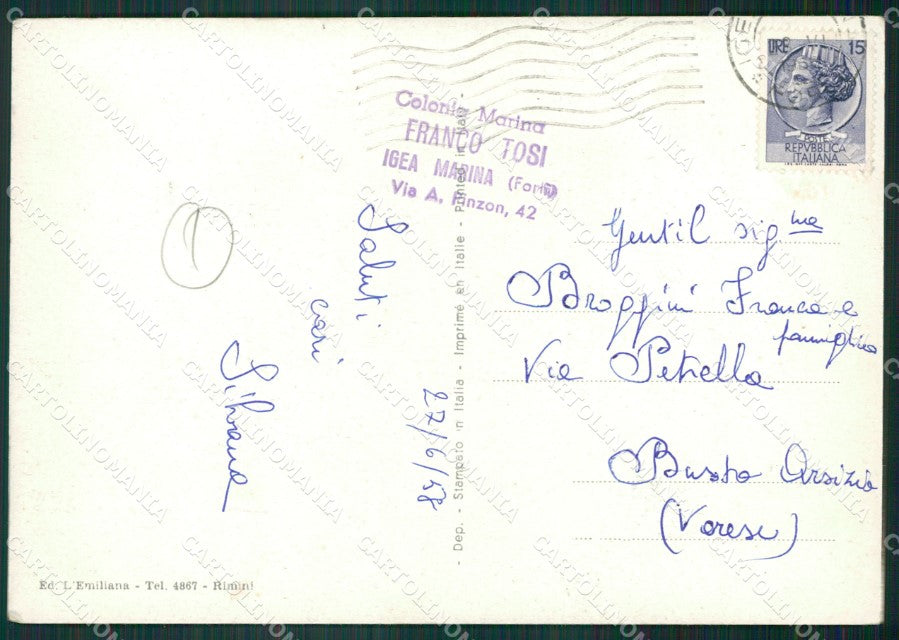 LIRE 15
POSTE
REPVBBLICA
ITALIANA
Colonia Marina
FRANCO TOSI
IGEA MARINA (Forlì)
Via A. Pinzon, 42
Saluti
cari
Silvana
27/6/58
Gentil sig.na
Broggini Franca e
famiglia
Via Petrella
Busto Arsizio
(Varese)
Dep. - Stampato in Italia - Imprimé en Italie - Printed in Italy
Ed. L'Emiliana - Tel. 4867 - Rimini
1
CARTOLINOMANIA